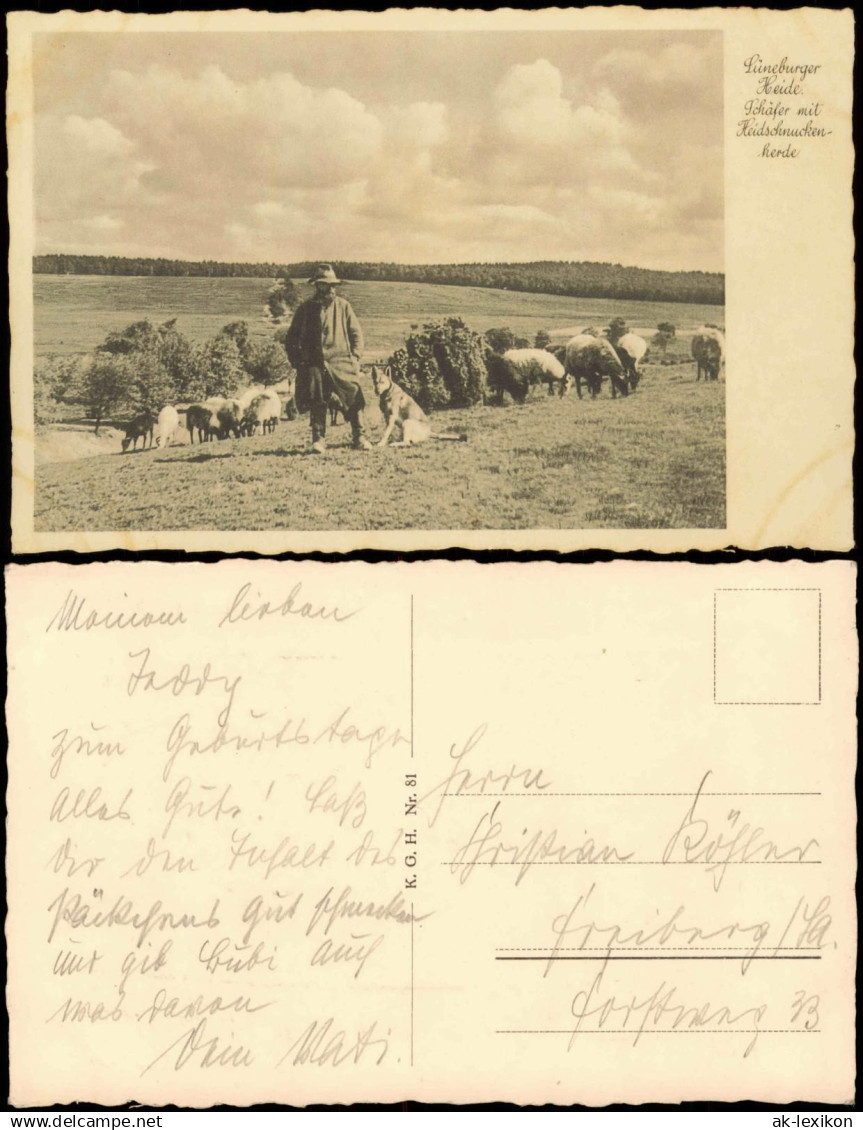 Lüneburger
Heide.
Schäfer mit
Heidschnucken-
herde
Meinem lieben
Teddy
zum Geburtstage
Alles Gute! Laß
Dir den Inhalt des
Päckchens gut schmecken
und gib Bubi auch
was davon
Dein Vati.
K. G. H. Nr. 81
Herrn
Christian Köhler
Freiberg/Sa.
Forstweg
ansichtskarten-lexikon.de
ak-lexikon